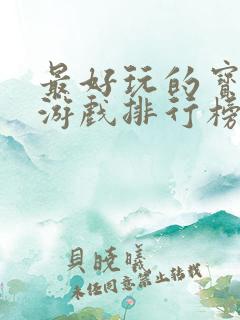 最好玩的宝
游戏排行榜
貝曉曦
未经同意禁止转载